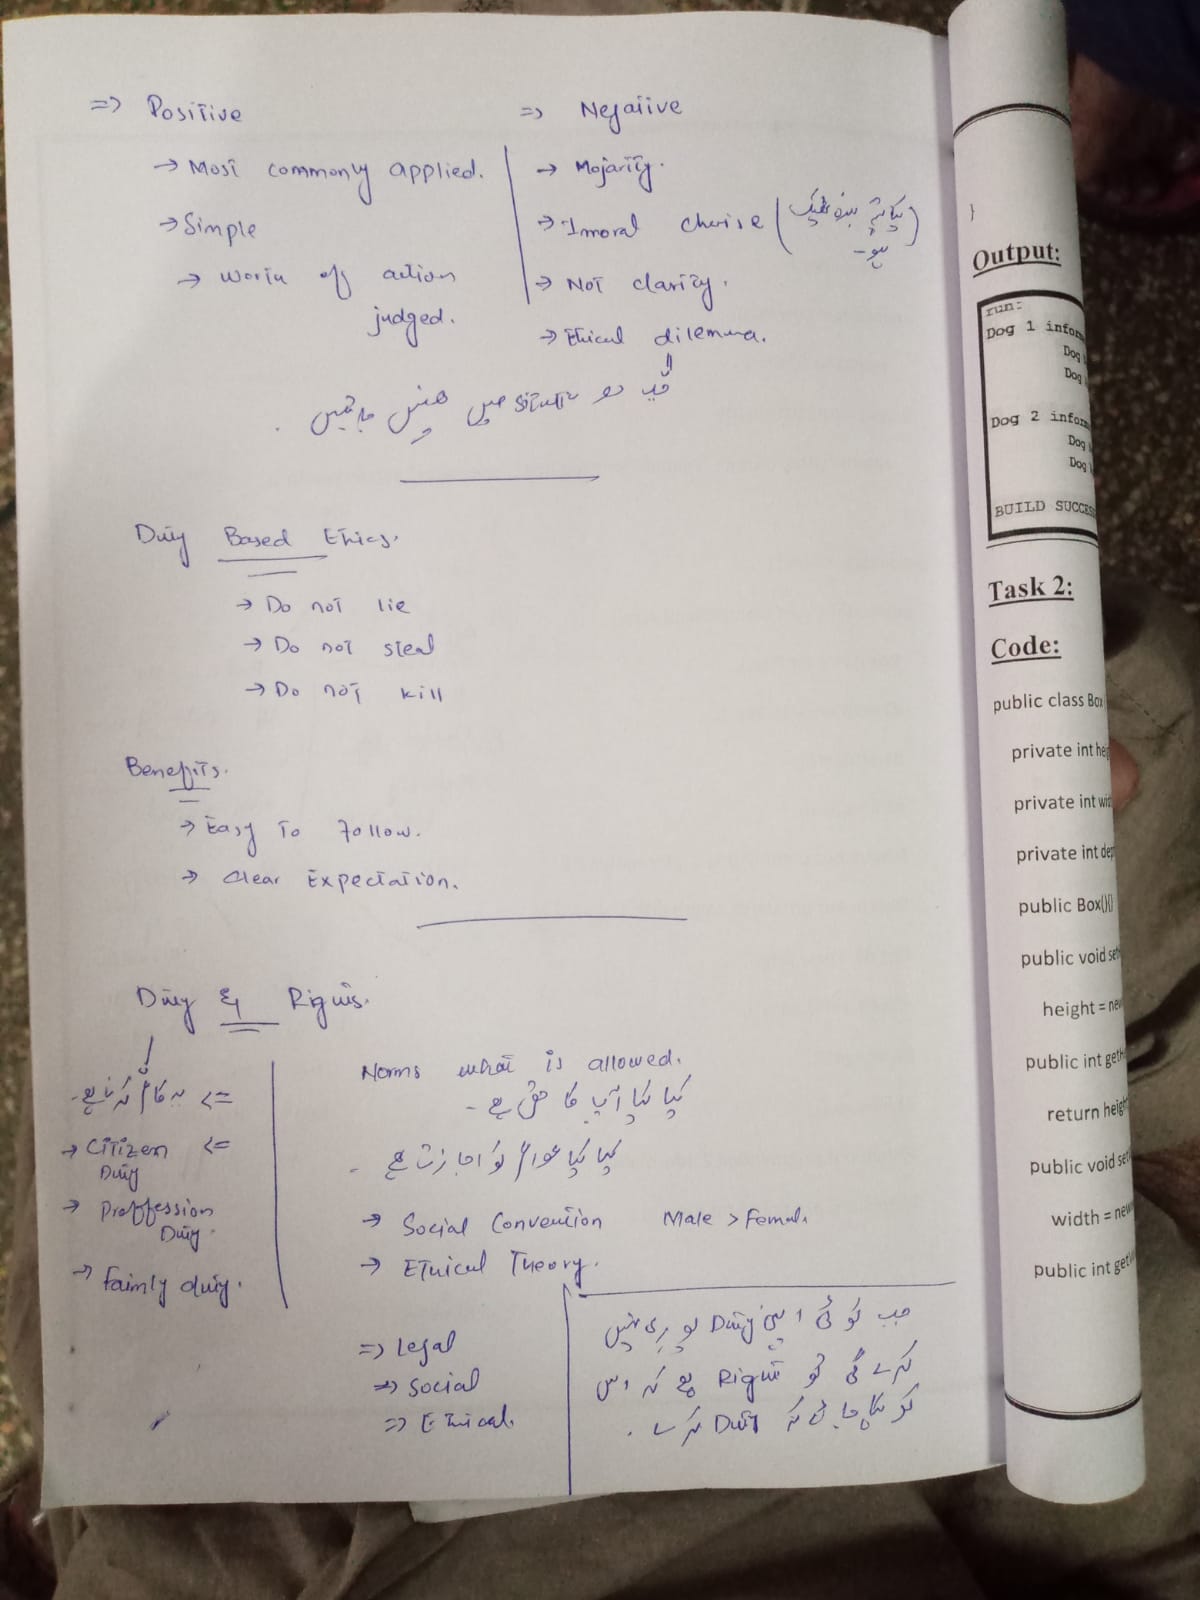 => Positive
→ Most commonly applied.
→ Simple
→ Worth of action
judged.
=> Negative
→ Mojarity.
→ Imoral
→ Not clarity.
→ Ethical dilemma.
situation میں پھنس جائیں
Duty Based Ethics.
→ Do not lie
→ Do not steal
→ Do not kill
Benefits.
→ Easy To Follow.
→ Clear Expectation.
Duty & Rights.
یہ کام کرنا ہے۔ <=
→ Citizen <=
Duty
→ Proffession
Duty.
→ Faimly duty.
Norms what is allowed.
کیا آپ کا حق ہے۔
کیا کیا عوام کو اجازت ہے۔
→ Social Convention Male > Female
→ Ethical Theory.
=> Legal
=> Social
=> Ethical.
جب کوئی اپنی Duty پوری نہیں
کرے گی تو Right ہے کہ اس
کو کہا جائے کہ Duty کرے۔
}
Output:
run:
Dog 1 inform
Dog
Dog
Dog 2 inform
Dog
Dog
BUILD SUCCES
Task 2:
Code:
public class Box
private int hei
private int wid
private int dep
public Box(){}
public void set
height = new
public int getH
return heigh
public void set
width = new
public int getW